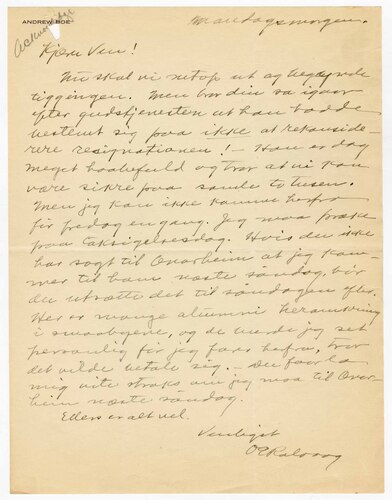 ANDREW BOE
Mandagsmorgen.
Kjere Ven!
Nu skal vi netop ut og begynde
tiggingen. Men bror din sa igaar
efter gudstjenesten at han hadde
bestemt sig paa ikke at rekonside-
rere resignationen! — Han er dog
meget haabefuld og tror at vi kan
være sikre paa samle to tusen.
Men jeg kan ikke komme herfra
før fredag engang. Jeg maa præke
paa taksigelsesdag. Hvis du ikke
har sagt til Overheim at jeg kom-
mer til ham næste søndag, bør
du utsætte det til søndagen efter.
Her er mange alumni heromkring
i smaabyene, og de burde jeg set
personlig før jeg farer herfra, tror
det vilde betale sig. — Du faar la
mig vite straks om jeg maa til Over-
heim næste søndag.
Ellers er alt vel.
Venligst